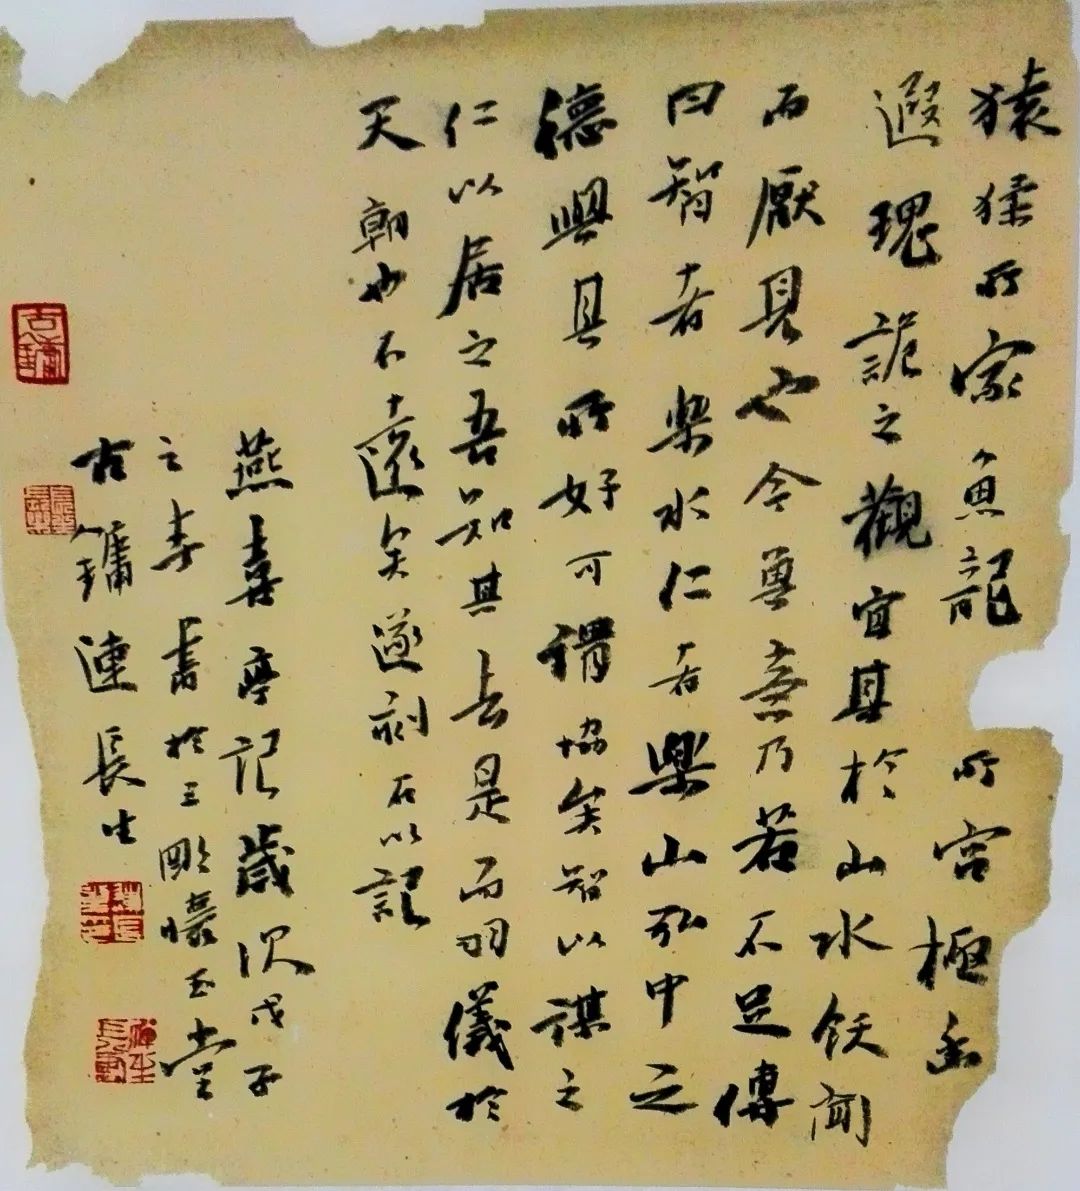 猿猱所家魚龍所宮極幽
遐瑰詭之觀宜其於山水飫聞
而厭見也今其意乃若不足傳
曰智者樂水仁者樂山弘中之
德與其所好可謂協矣智以謀之
仁以居之吾知其去是而羽儀於
天朝也不遠矣遂刻石以記
燕喜亭記歲次戊子
之春書於三畝懷玉堂
古鏞連長生
古鏞